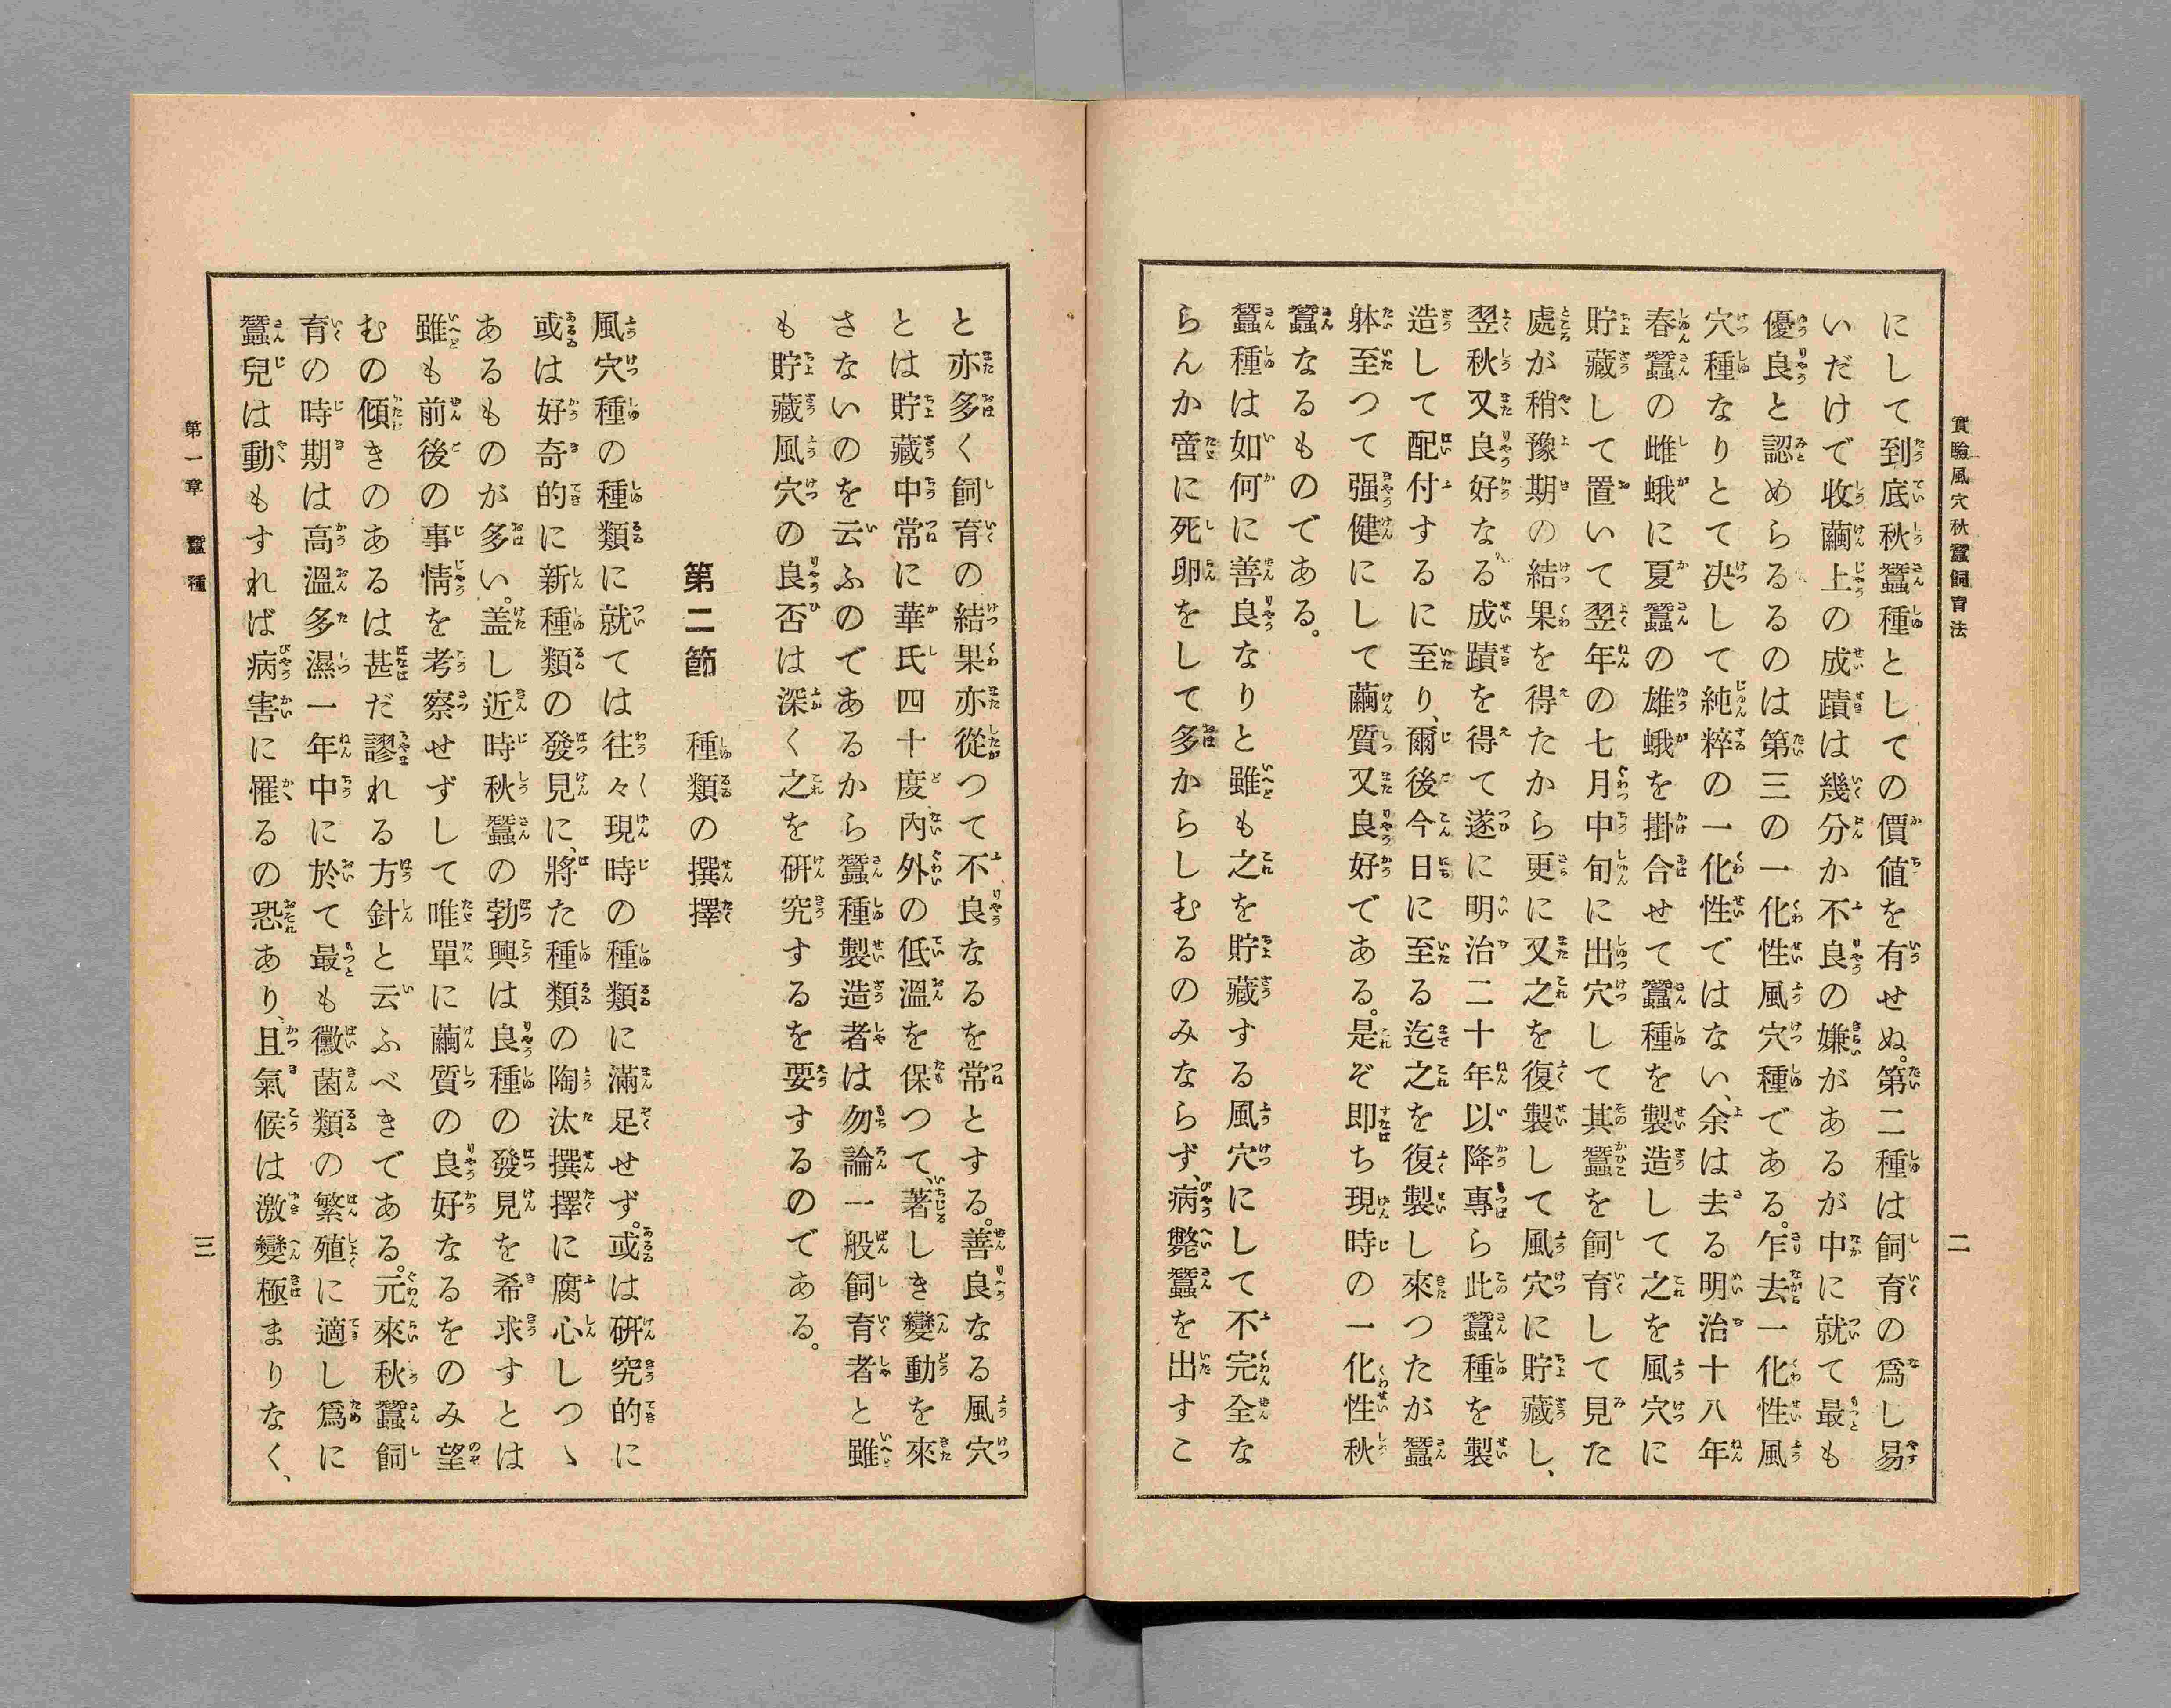 實驗風穴秋蠶飼育法
二
にして到底秋蠶種としての價値を有せぬ。第二種は飼育の爲し易
いだけで收繭上の成蹟は幾分か不良の嫌があるが中に就て最も
優良と認めらるるのは第三の一化性風穴種である。乍去一化性風
穴種なりとて决して純粹の一化性ではない、余は去る明治十八年
春蠶の雌蛾に夏蠶の雄蛾を掛合せて蠶種を製造して之を風穴に
貯藏して置いて翌年の七月中旬に出穴して其蠶を飼育して見た
處が稍豫期の結果を得たから更に又之を復製して風穴に貯藏し、
翌秋又良好なる成蹟を得て遂に明治二十年以降專ら此蠶種を製
造して配付するに至り、爾後今日に至る迄之を復製し來つたが蠶
躰至つて强健にして繭質又良好である。是ぞ即ち現時の一化性秋
蠶なるものである。
蠶種は如何に善良なりと雖も之を貯藏する風穴にして不完全な
らんか啻に死卵をして多からしむるのみならず、病斃蠶を出すこ
と亦多く飼育の結果亦從つて不良なるを常とする。善良なる風穴
とは貯藏中常に華氏四十度內外の低溫を保つて、著しき變動を來
さないのを云ふのであるから蠶種製造者は勿論一般飼育者と雖
も貯藏風穴の良否は深く之を硏究するを要するのである。
第二節 種類の撰擇
風穴種の種類に就ては往々現時の種類に滿足せず。或は硏究的に
或は好奇的に新種類の發見に、將た種類の陶汰撰擇に腐心しつゝ
あるものが多い。盖し近時秋蠶の勃興は良種の發見を希求すとは
雖も前後の事情を考察せずして唯單に繭質の良好なるをのみ望
むの傾きのあるは甚だ謬れる方針と云ふべきである。元來秋蠶飼
育の時期は高溫多濕一年中に於て最も黴菌類の繁殖に適し爲に
蠶兒は動もすれば病害に罹るの恐あり、且氣候は激變極まりなく、
第一章 蠶種
三